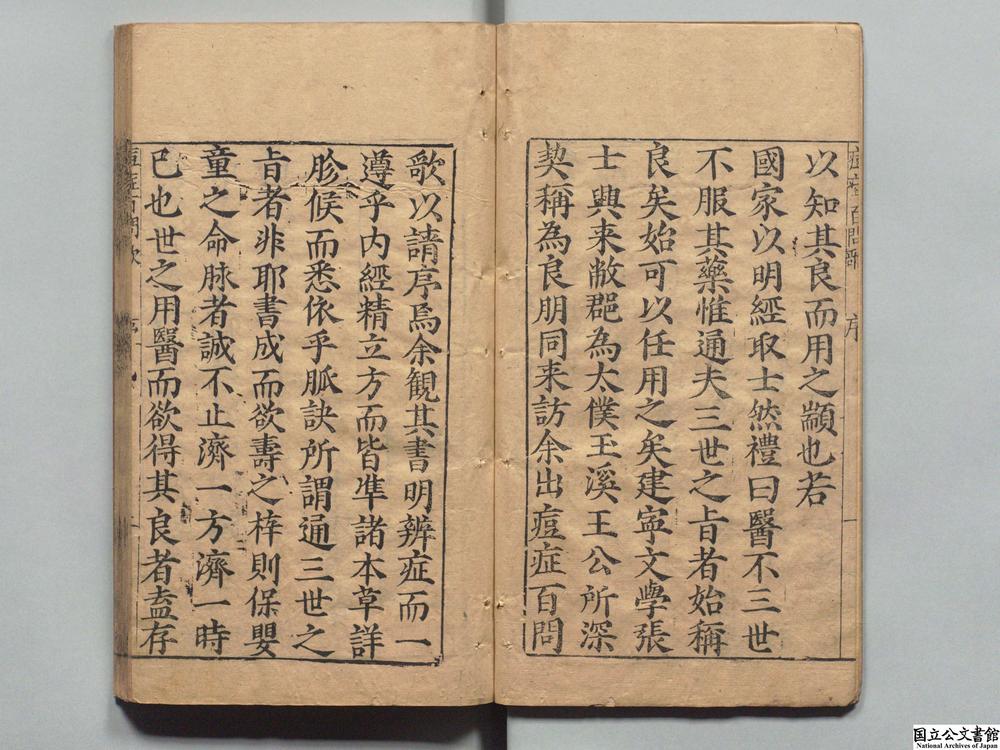 痘症百問歌 序
以知其良而用之顓也若
國家以明經取士然禮曰醫不三世
不服其藥惟通夫三世之旨者始稱
良矣始可以任用之矣建寧文學張
士興来敝郡為太僕玉溪王公所深
契稱為良朋同来訪余出痘症百問
歌以請序焉余観其書明辨症而一
遵乎内經精立方而皆凖諸本草詳
胗候而悉依乎脈訣所謂通三世之
旨者非耶書成而欲壽之梓則保嬰
童之命脉者誠不止濟一方濟一時
已也世之用醫而欲得其良者盍存
痘症百問歌 序
国立公文書館
National Archives of Japan